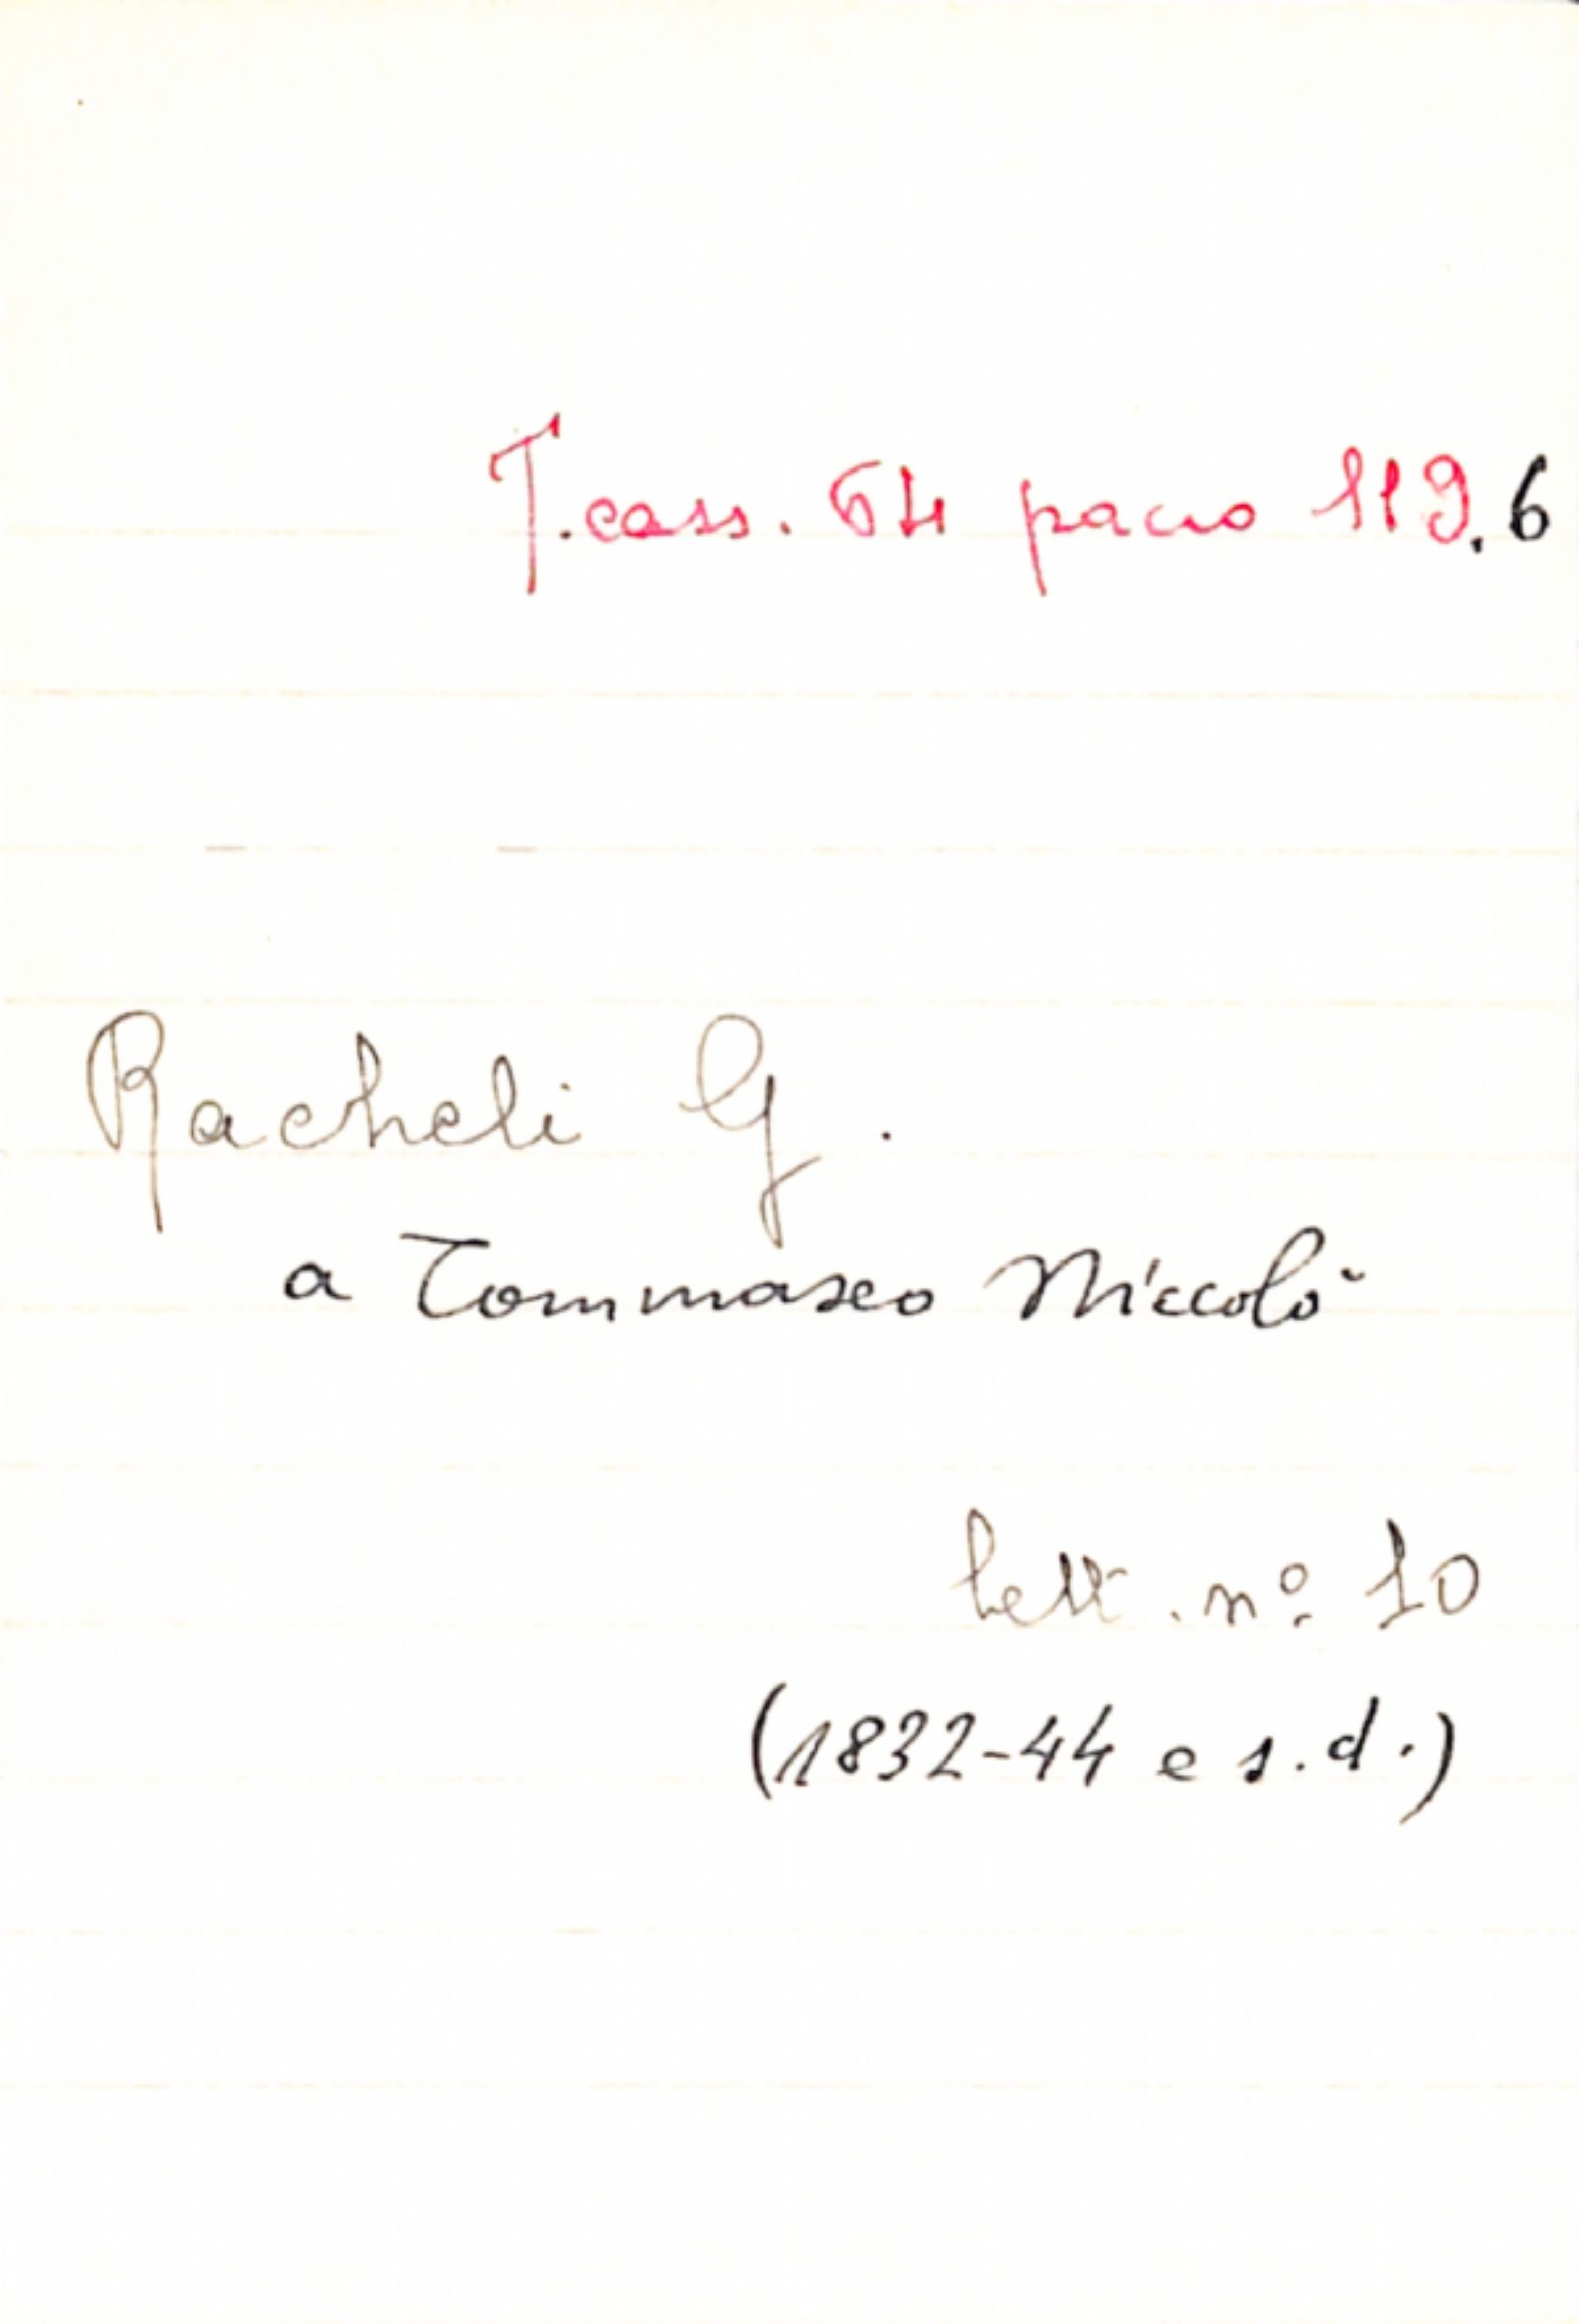 T. cass. 64 pacco 119.6
Racheli G.
a Tommaseo Niccolò
lett. nº 10
(1832-44 e s.d.)